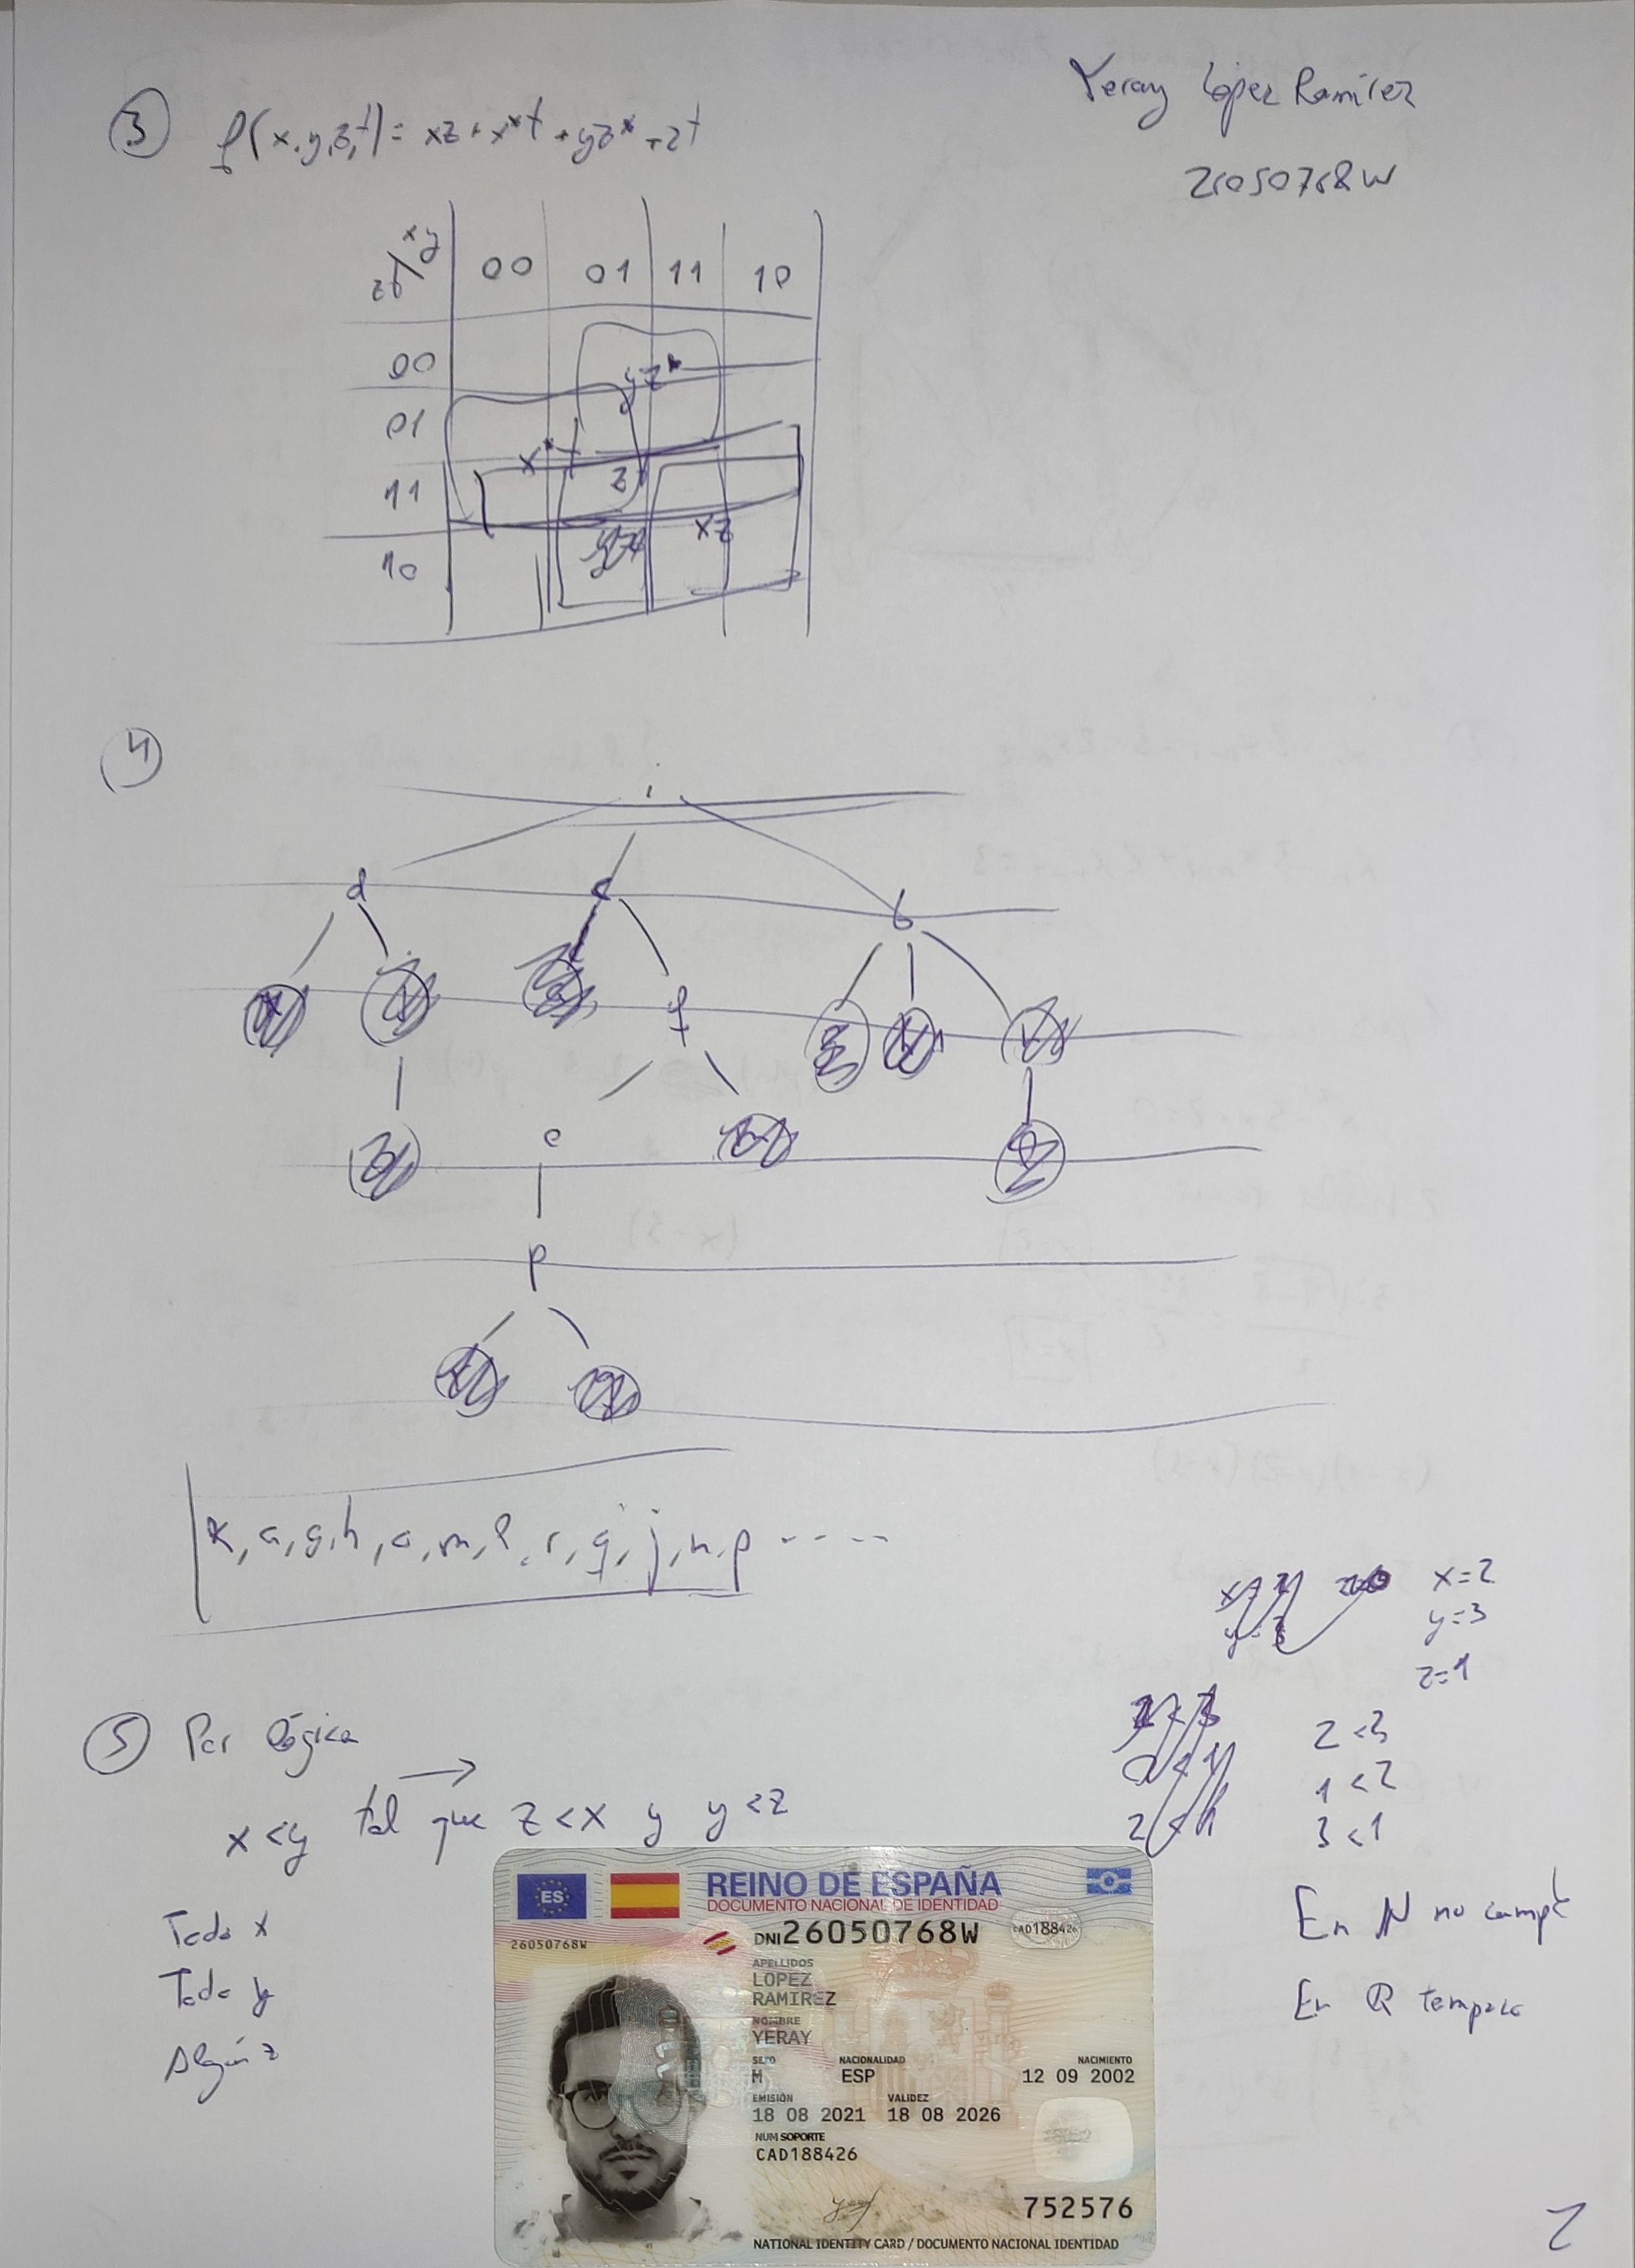 Yeray López Ramírez
26050768W
③ f(x,y,z,t) = xz + x*t + yz* + zt
xy
zt
00 01 11 10
00
yz*
01
x*t
11
zt
10
xz
④
i
d c b
f
e
p
k, a, g, h, o, m, l, r, q, j, n, p ----
x=2
y=3
z=1
⑤ Por lógica
x<y tal que z<x y y<z
2<3
1<2
3<1
Todo x
Todo y
Algún z
En N no cumple
En Q tampoco
ES
REINO DE ESPAÑA
DOCUMENTO NACIONAL DE IDENTIDAD
DNI 26050768W
CAD188426
26050768W
APELLIDOS
LOPEZ
RAMIREZ
NOMBRE
YERAY
SEXO NACIONALIDAD NACIMIENTO
M ESP 12 09 2002
EMISIÓN VALIDEZ
18 08 2021 18 08 2026
NUM SOPORTE
CAD188426
752576
NATIONAL IDENTITY CARD / DOCUMENTO NACIONAL IDENTIDAD
2